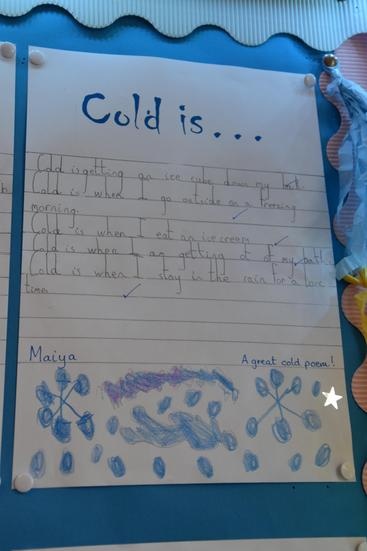 Cold is...
Cold is getting an ice cube down my back.
Cold is when I go outside on a freezing
morning.
Cold is when I eat an ice cream
Cold is when I am getting ot of my bath.
Cold is when I stay in the rain for a
time.
Maiya
A great cold poem!